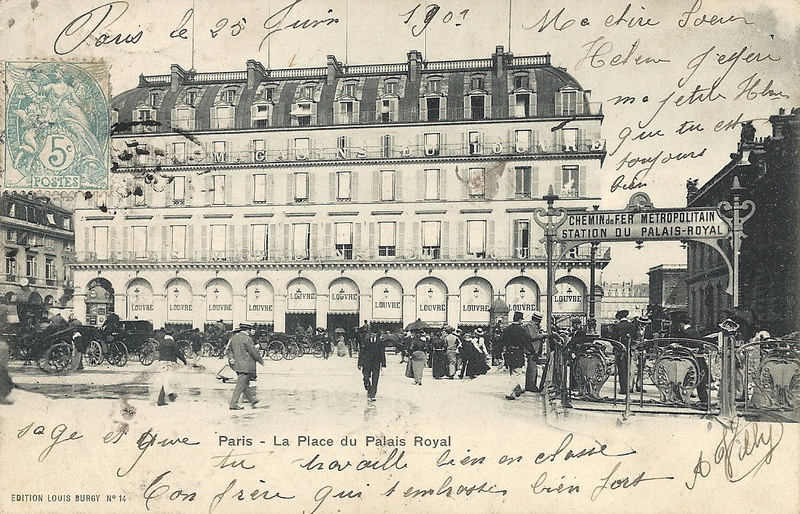 Paris le 25 Juin 190
Ma chère Soeur
Helene j'espere
ma petite
que tu est
toujours
bien
5c
POSTES
MAGASINS DU LOUVRE
CHEMIN DE FER METROPOLITAIN
STATION DU PALAIS-ROYAL
LOUVRE LOUVRE LOUVRE LOUVRE LOUVRE LOUVRE LOUVRE LOUVRE LOUVRE LOUVRE LOUVRE
sage et que
Paris - La Place du Palais Royal
tu travaille bien en classe
Ton frère qui t'embrasse bien fort
EDITION LOUIS BURGY Nº 14